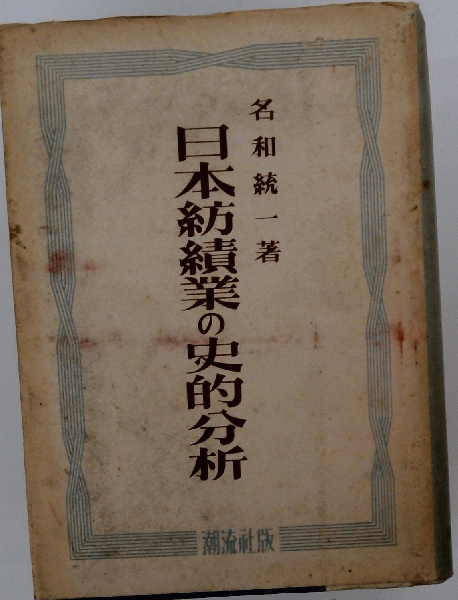 名和統一著
日本紡績業の史的分析
潮流社版